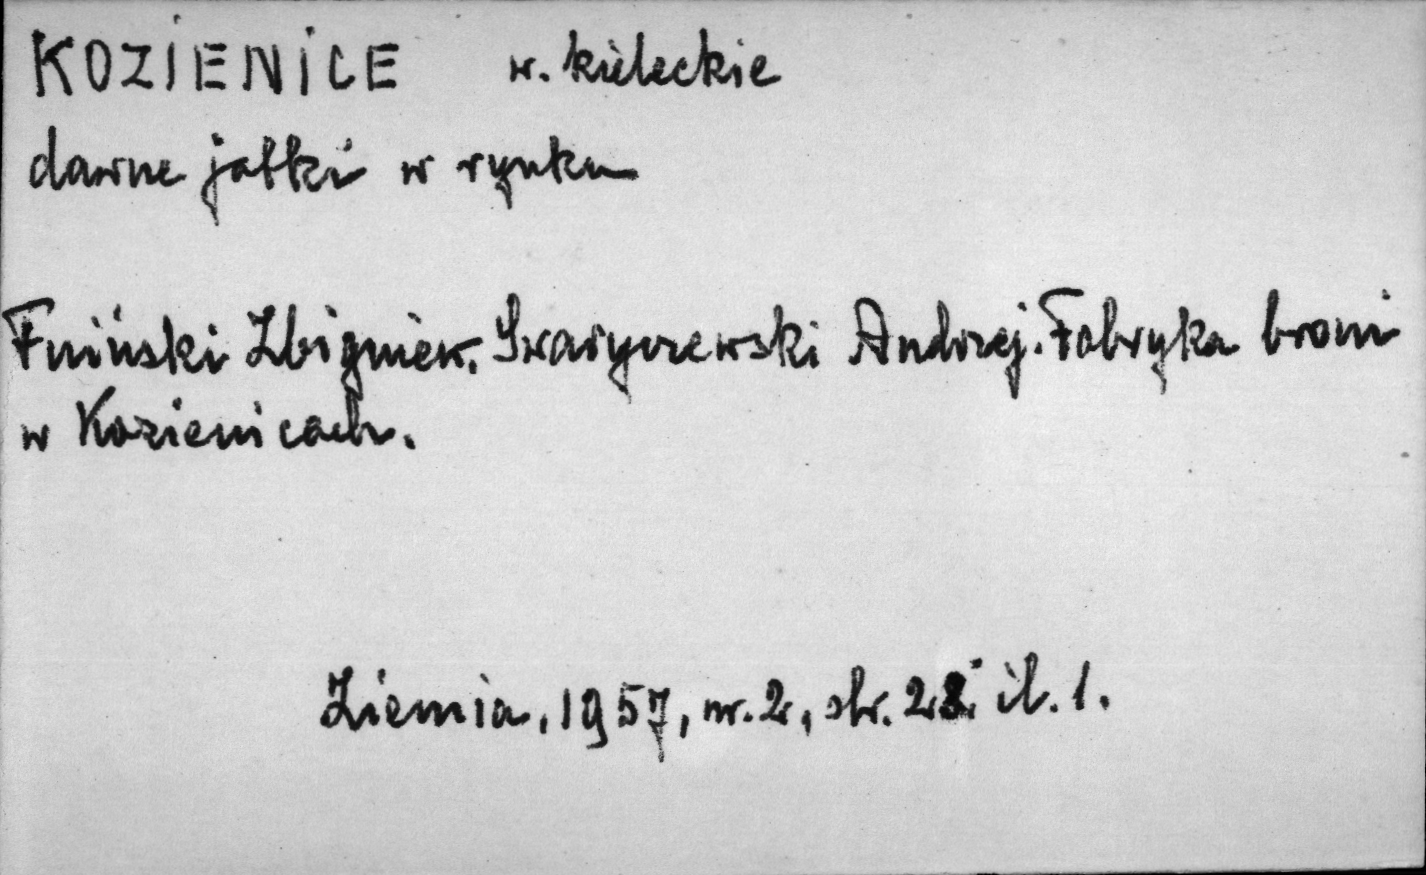 KOZIENICE w. kieleckie
dawne jatki w rynku
Fniński Zbigniew. Swaryczewski Andrzej. Fabryka broni
w Kozienicach.
Ziemia, 1957, nr. 2, str. 28. il. 1.